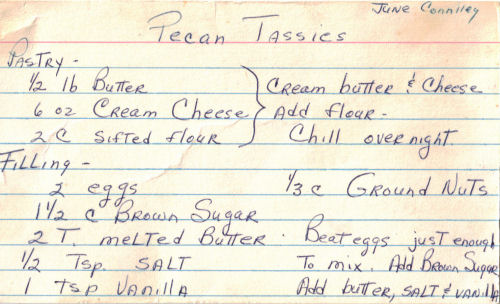 June Connlley
Pecan Tassies
Pastry -
1/2 lb Butter
6 oz Cream Cheese
2 C Sifted flour
Cream butter & Cheese
Add flour -
Chill overnight.
Filling -
2 eggs
1/3 c Ground Nuts
1 1/2 c Brown Sugar
2 T. melted Butter.
1/2 Tsp. SALT
1 tsp Vanilla
Beat eggs just enough
To mix. Add Brown Sugar
Add butter, SALT & Vanilla